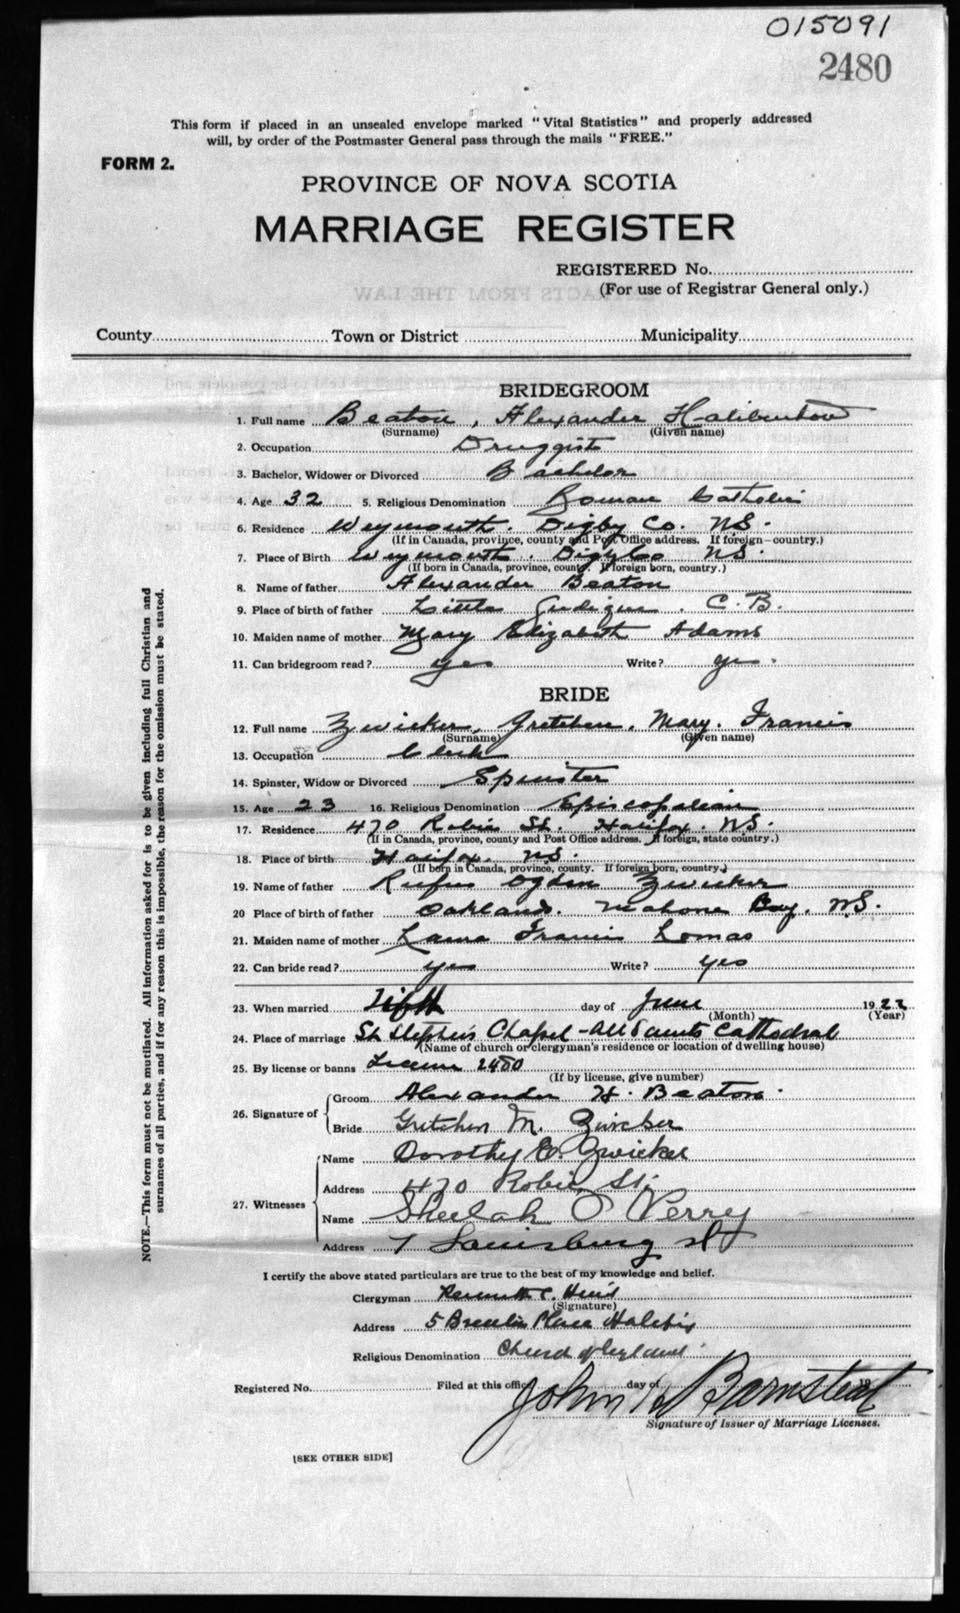 015091
2480
This form if placed in an unsealed envelope marked "Vital Statistics" and properly addressed
will, by order of the Postmaster General pass through the mails "FREE."
FORM 2.
PROVINCE OF NOVA SCOTIA
MARRIAGE REGISTER
REGISTERED No.
(For use of Registrar General only.)
County Town or District Municipality
BRIDEGROOM
1. Full name Beaton, Alexander Haliburton
(Surname) (Given name)
2. Occupation Druggist
3. Bachelor, Widower or Divorced Bachelor
4. Age 32 5. Religious Denomination Roman Catholic
6. Residence Weymouth. Digby Co. NS.
(If in Canada, province, county and Post Office address. If foreign—country.)
7. Place of Birth Weymouth. Digby Co NS.
(If born in Canada, province, county. If foreign born, country.)
8. Name of father Alexander Beaton
9. Place of birth of father Little C.B.
10. Maiden name of mother Mary Elizabeth Adams
11. Can bridegroom read? yes Write? yes.
BRIDE
12. Full name Zwicker, Gretchen, Mary. Francis
(Surname) (Given name)
13. Occupation Clerk
14. Spinster, Widow or Divorced Spinster
15. Age 23 16. Religious Denomination Episcopalian
17. Residence 470 Robie St. Halifax. NS.
(If in Canada, province, county and Post Office address. If foreign, state country.)
18. Place of birth Halifax. NS.
(If born in Canada, province, county. If foreign born, country.)
19. Name of father Rufus Ogden Zwicker
20 Place of birth of father Oakland. Mahone Bay. NS.
21. Maiden name of mother Laura Francis Lomas
22. Can bride read? yes Write? yes
23. When married Fifth day of June 1922
(Month) (Year)
24. Place of marriage St Stephens Chapel - All Saints Cathedral
(Name of church or clergyman's residence or location of dwelling house)
25. By license or banns License 2480
(If by license, give number)
26. Signature of Groom Alexander H. Beaton.
Bride Gretchen M. Zwicker
27. Witnesses Name Dorothy E. Zwicker
Address 470 Robie St.
Name Sheilah P Perry
Address 7 Louisburg St
I certify the above stated particulars are true to the best of my knowledge and belief.
Clergyman Kenneth C.
(Signature)
Address 5 Place Halifax
Religious Denomination Church of England
Registered No. Filed at this office day of 19
John Barnstead
Signature of Issuer of Marriage Licenses.
[SEE OTHER SIDE]
NOTE.—This form must not be mutilated. All information asked for is to be given including full Christian and
surnames of all parties, and if for any reason this is impossible, the reason for the omission must be stated.